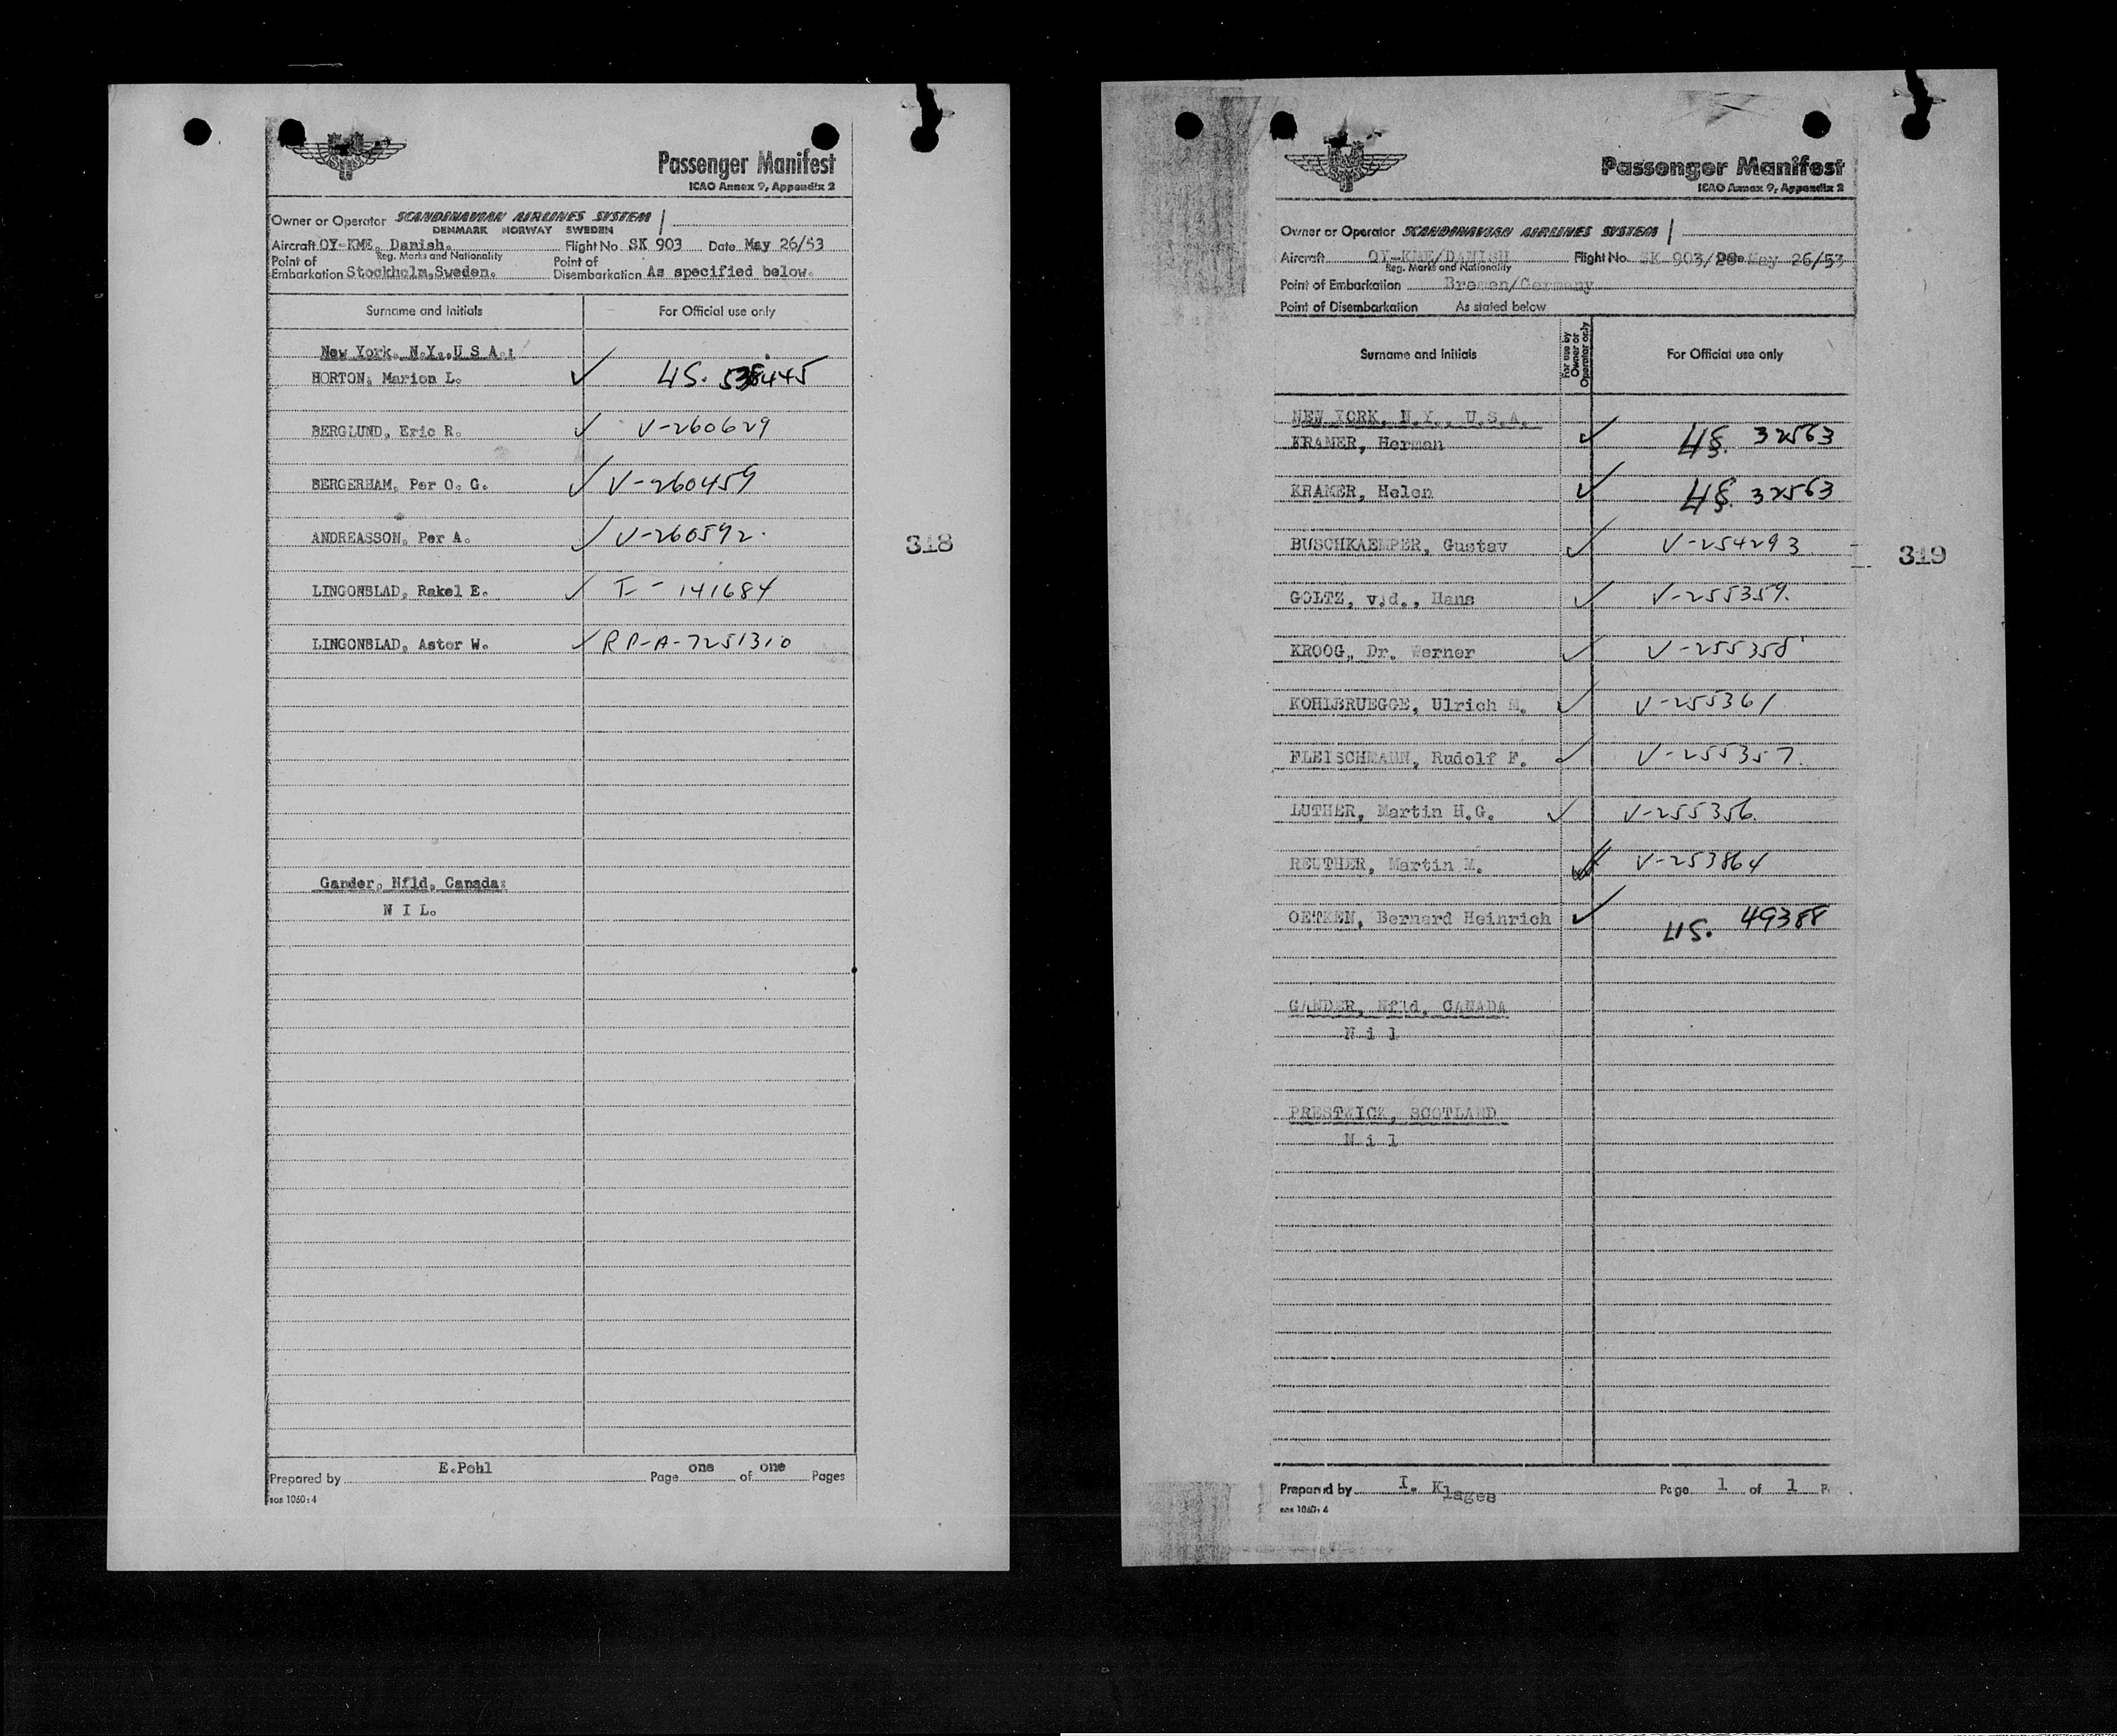 Passenger Manifest
ICAO Annex 9, Appendix 2
Owner or Operator SCANDINAVIAN AIRLINES SYSTEM
DENMARK NORWAY SWEDEN
Aircraft OY-KME. Danish. Flight No. SK 903 Date May 26/53
Reg. Marks and Nationality
Point of Embarkation Stockholm,Sweden. Point of Disembarkation As specified below.
Surname and Initials For Official use only
New York, N.Y.,U S A.:
HORTON, Marion L. ✓ US.
BERGLUND, Eric R. ✓ V-260629
BERGERHAM, Per O. G. ✓ V-260459
ANDREASSON, Per A. ✓ V-260592.
LINGONBLAD, Rakel E. ✓ I-141684
LINGONBLAD, Astor W. ✓ RP-A-7251310
Gander, Nfld, Canada:
N I L.
Prepared by E.Pohl Page one of one Pages
sas 1060:4
318
Passenger Manifest
ICAO Annex 9, Appendix 2
Owner or Operator SCANDINAVIAN AIRLINES SYSTEM
Aircraft OY-KME/DANISH Flight No. SK 903/ Date May 26/53
Reg. Marks and Nationality
Point of Embarkation Bremen/Germany
Point of Disembarkation As stated below
Surname and Initials For use by Owner or Operator only For Official use only
NEW YORK, N.Y., U.S.A.
KRAMER, Herman ✓ US. 32563
KRAMER, Helen ✓ US. 32563
BUSCHKAEMPER, Gustav ✓ V-254293
GOLTZ, v.d., Hans ✓ V-255359.
KROOG, Dr. Werner ✓ V-255358
KOHLBRUEGGE, Ulrich M. ✓ V-255361
FLEISCHMANN, Rudolf F. ✓ V-255357.
LUTHER, Martin H.G. ✓ V-255356.
REUTHER, Martin M. ✓ V-253864
OETKEN, Bernard Heinrich ✓ US. 49388
GANDER, Nfld, CANADA
N i l
PRESTWICK, SCOTLAND
N i l
Prepared by I. Klages Page 1 of 1 P
sas 1060:4
319